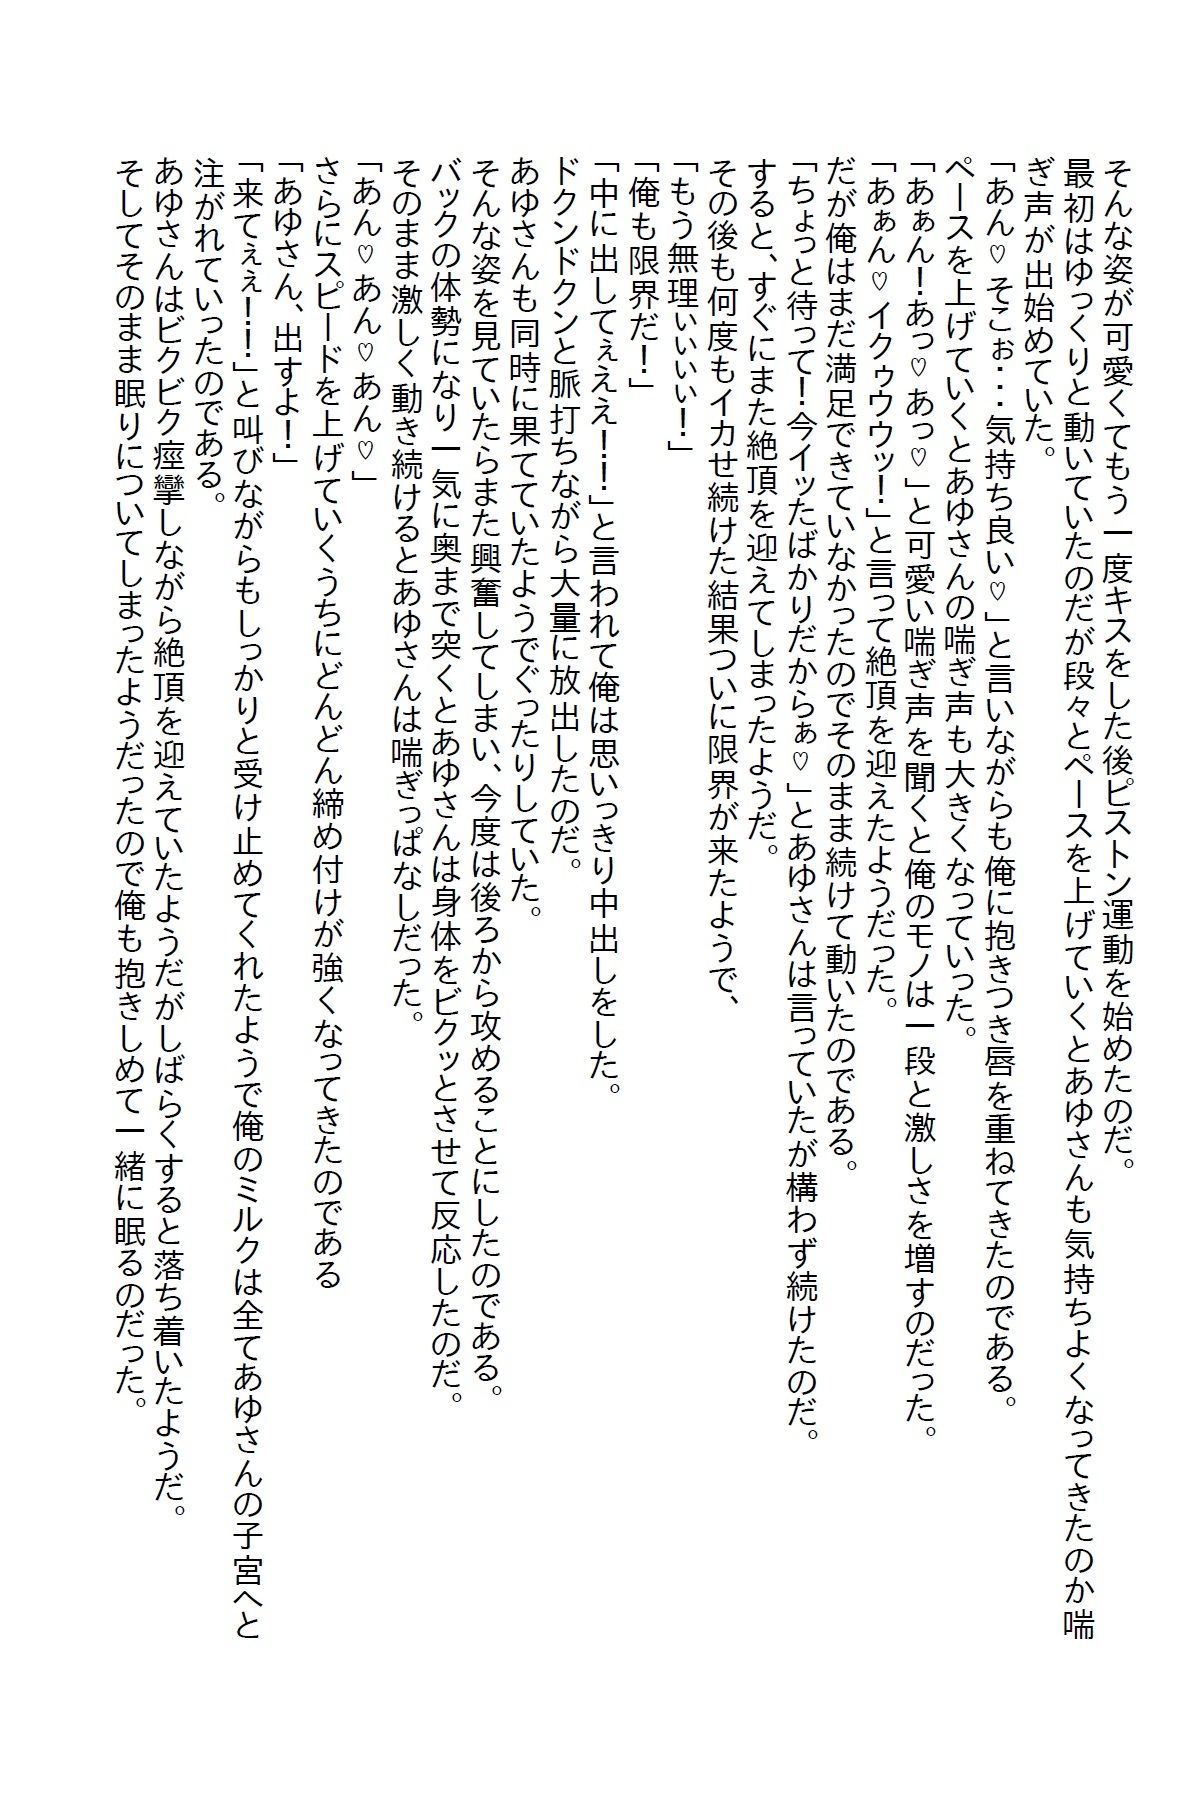 そんな姿が可愛くてもう一度キスをした後ピストン運動を始めたのだ。
最初はゆっくりと動いていたのだが段々とペースを上げていくとあゆさんも気持ちよくなってきたのか喘
ぎ声が出始めていた。
「あん♡そこぉ・・・気持ち良い♡」と言いながらも俺に抱きつき唇を重ねてきたのである。
ペースを上げていくとあゆさんの喘ぎ声も大きくなっていった。
「あぁん！あっ♡あっ♡」と可愛い喘ぎ声を聞くと俺のモノは一段と激しさを増すのだった。
「あぁん♡イクゥウウッ！」と言って絶頂を迎えたようだった。
だが俺はまだ満足できていなかったのでそのまま続けて動いたのである。
「ちょっと待って！今イッたばかりだからぁ♡」とあゆさんは言っていたが構わず続けたのだ。
すると、すぐにまた絶頂を迎えてしまったようだ。
その後も何度もイカせ続けた結果ついに限界が来たようで、
「もう無理ぃぃぃぃ！」
「俺も限界だ！」
「中に出してぇええ！！」と言われて俺は思いっきり中出しをした。
ドクンドクンと脈打ちながら大量に放出したのだ。
あゆさんも同時に果てていたようでぐったりしていた。
そんな姿を見ていたらまた興奮してしまい、今度は後ろから攻めることにしたのである。
バックの体勢になり一気に奥まで突くとあゆさんは身体をビクッとさせて反応したのだ。
そのまま激しく動き続けるとあゆさんは喘ぎっぱなしだった。
「あん♡あん♡あん♡」
さらにスピードを上げていくうちにどんどん締め付けが強くなってきたのである
「あゆさん、出すよ！」
「来てぇぇ！！！」と叫びながらもしっかりと受け止めてくれたようで俺のミルクは全てあゆさんの子宮へと
注がれていったのである。
あゆさんはビクビク痙攣しながら絶頂を迎えていたようだがしばらくすると落ち着いたようだ。
そしてそのまま眠りについてしまったようだったので俺も抱きしめて一緒に眠るのだった。